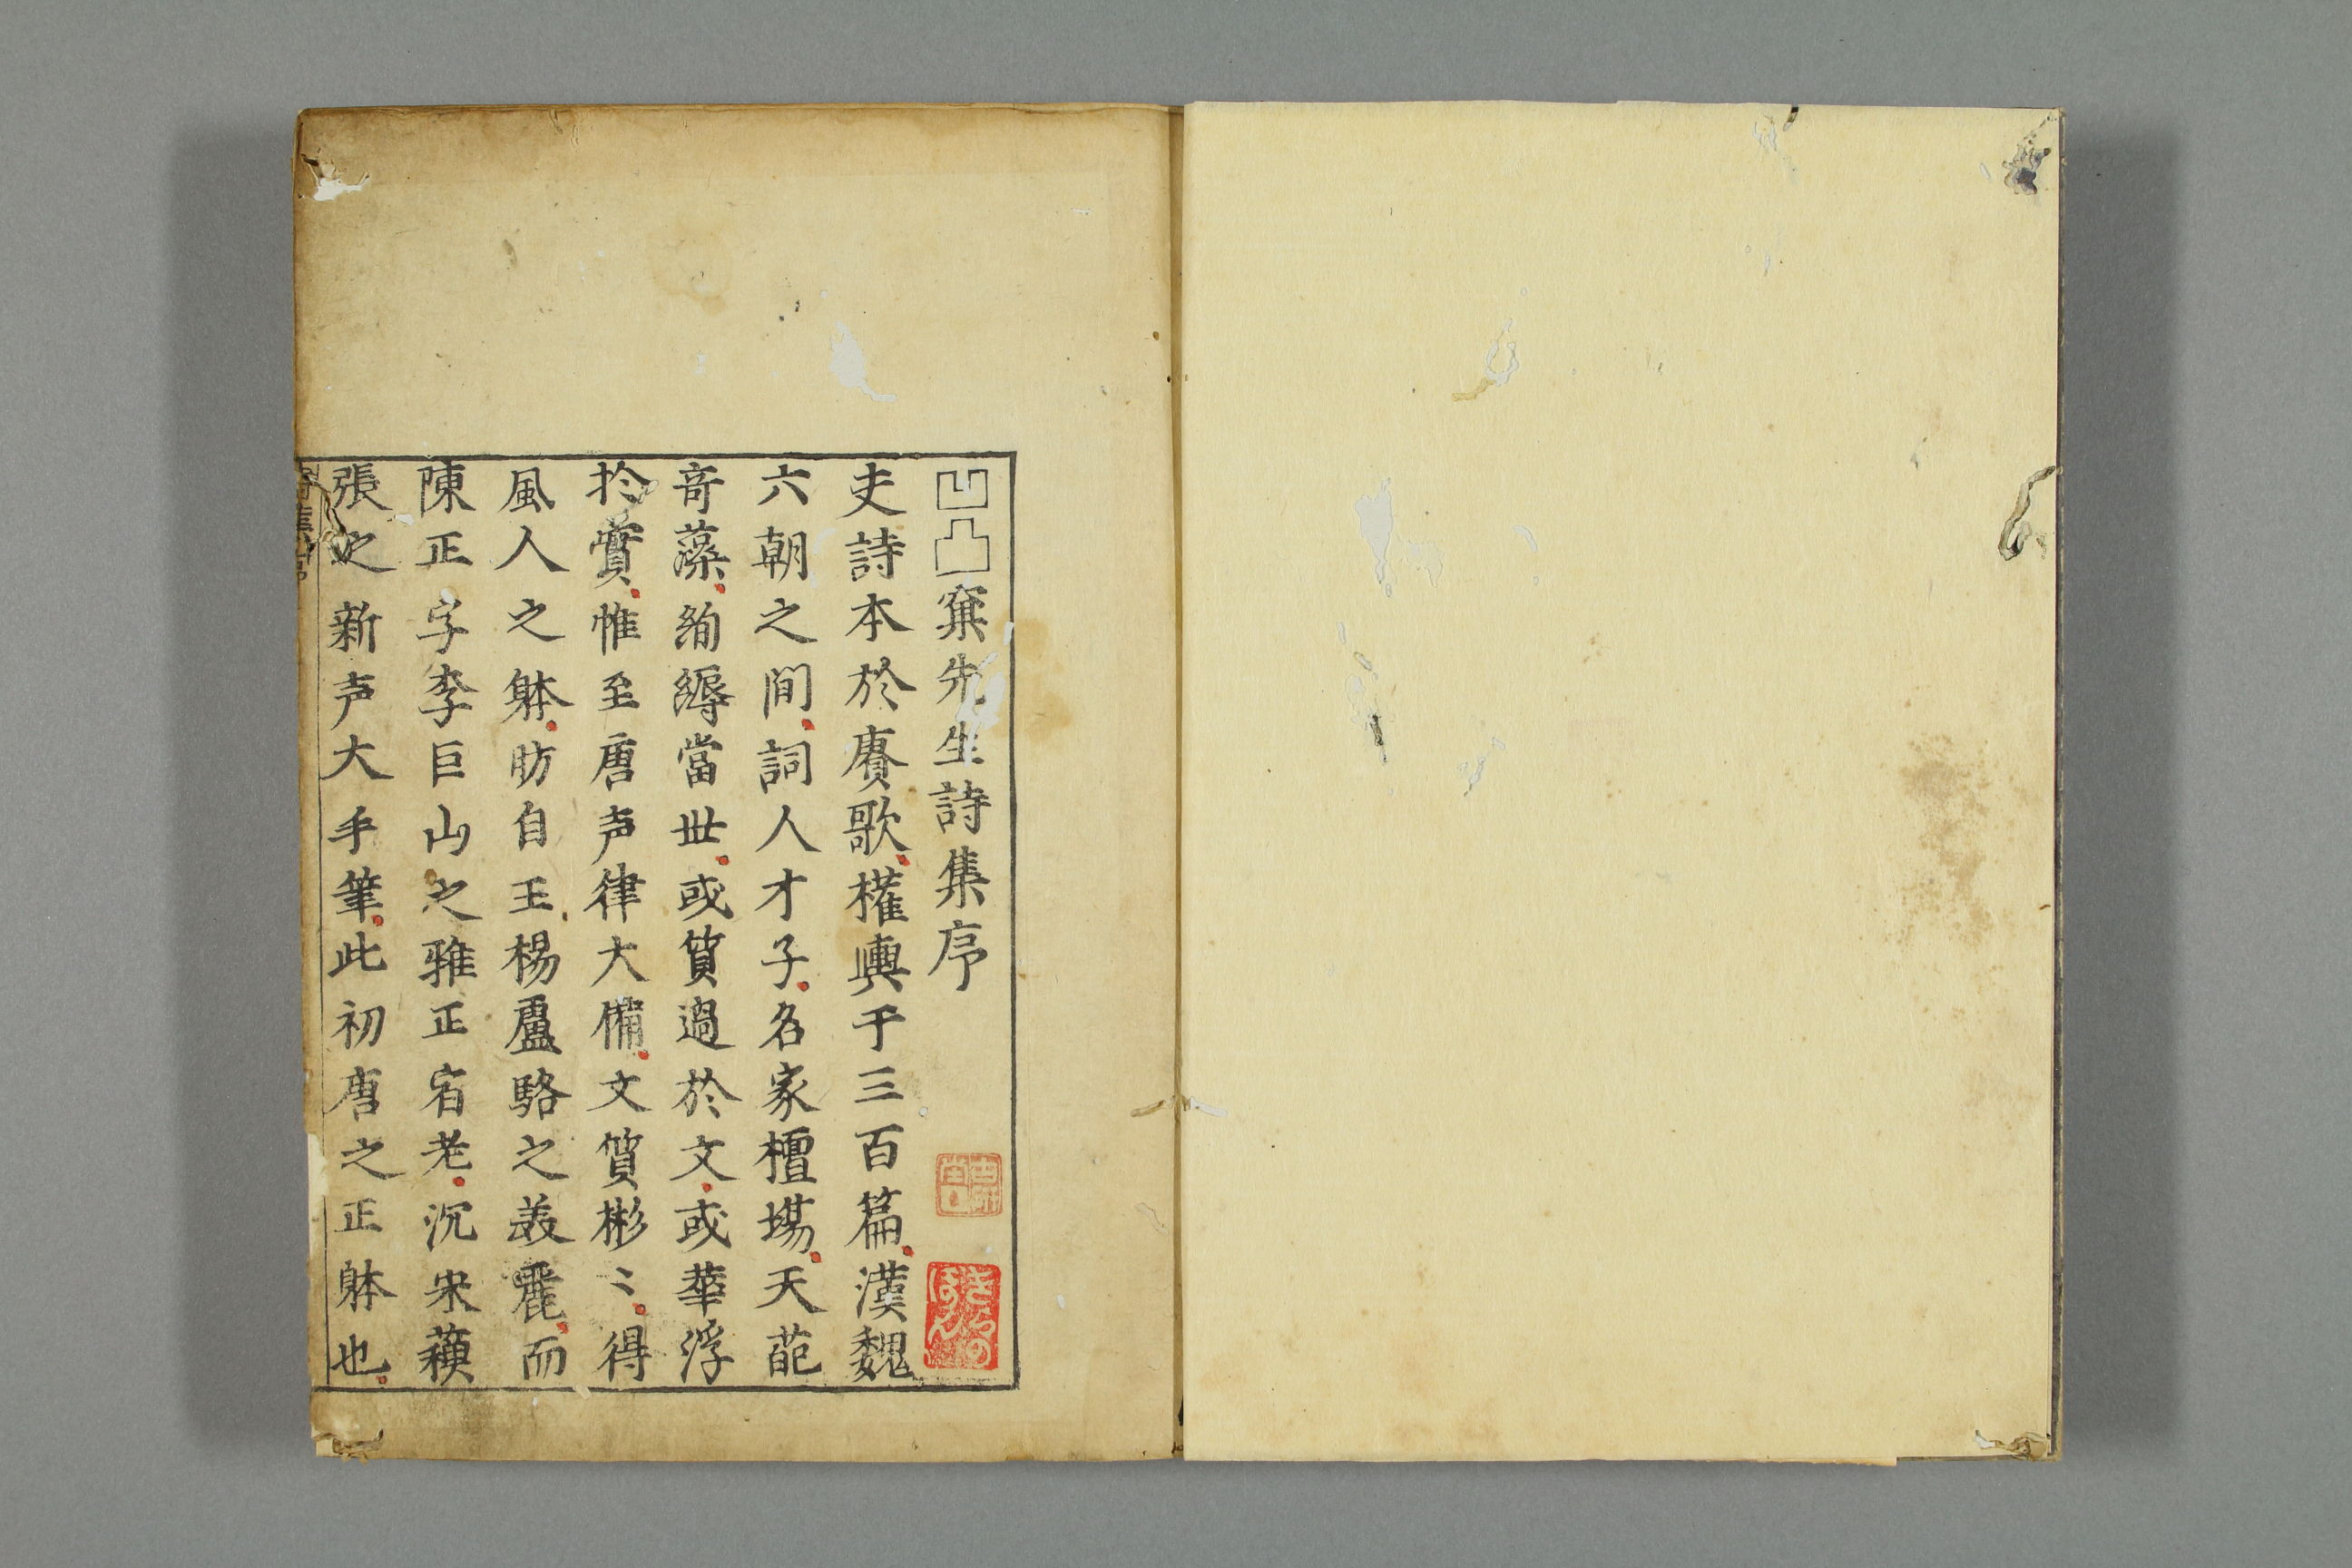 凹凸窠先生詩集序
夫詩本於賡歌權輿于三百篇漢魏
六朝之間詞人才子名家檀塲天葩
竒藻絢縟當世或質過於文或華浮
扵實惟至唐声律大備文質彬〻得
風人之躰昉自王楊盧駱之美麗而
陳正字李巨山之雅正宿老沉宋蘓
張之新声大手筆此初唐之正躰也